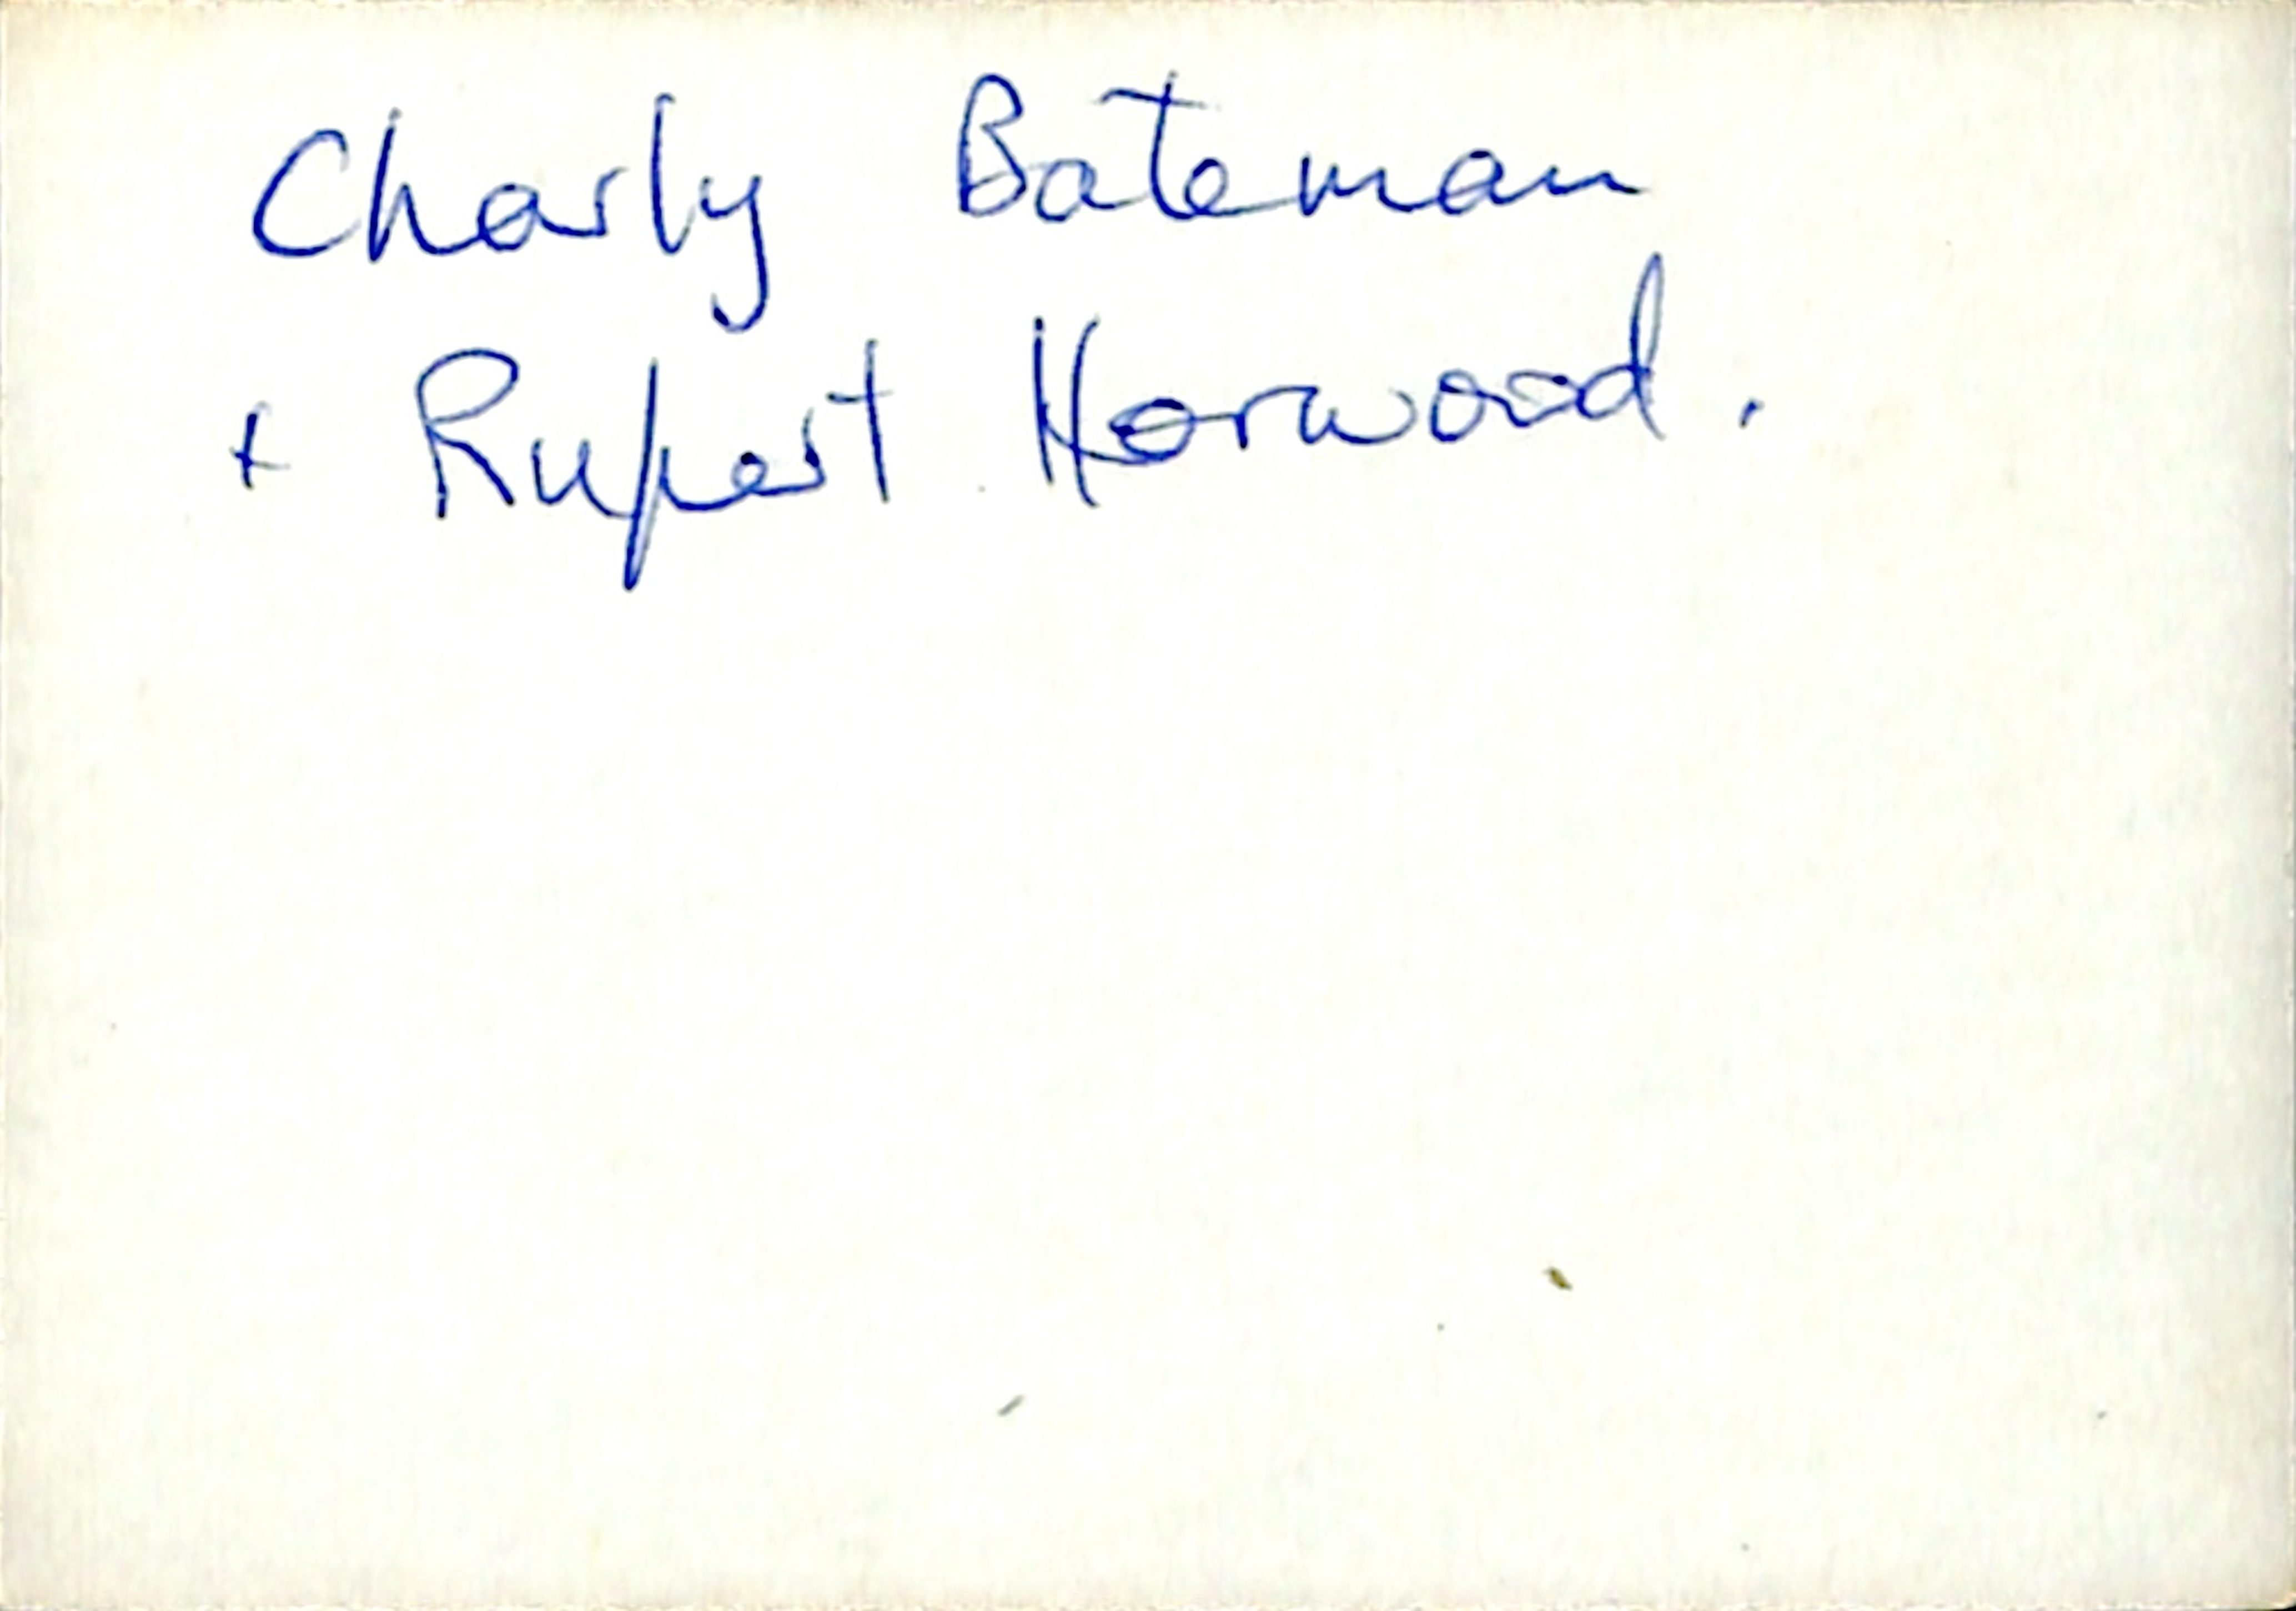 Charly Bateman
+ Rupert Horwood.